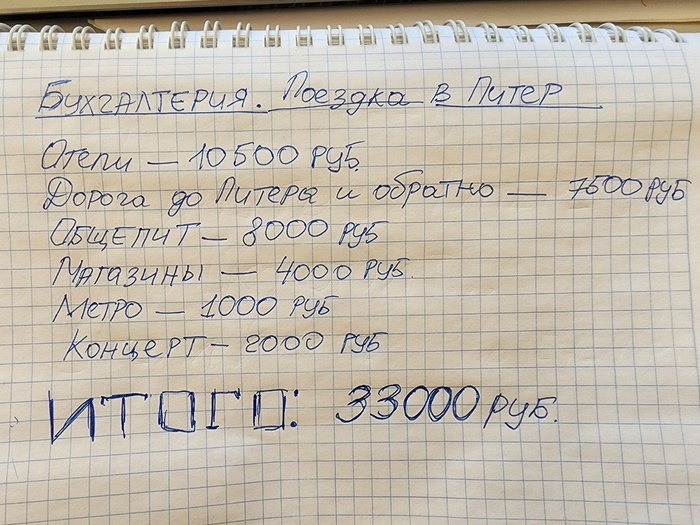 Бухгалтерия. Поездка в Питер
Отели — 10500 руб.
Дорога до Питера и обратно — 7500 руб
Общепит — 8000 руб
Магазины — 4000 руб.
Метро — 1000 руб
Концерт — 2000 руб
ИТОГО: 33000 руб.